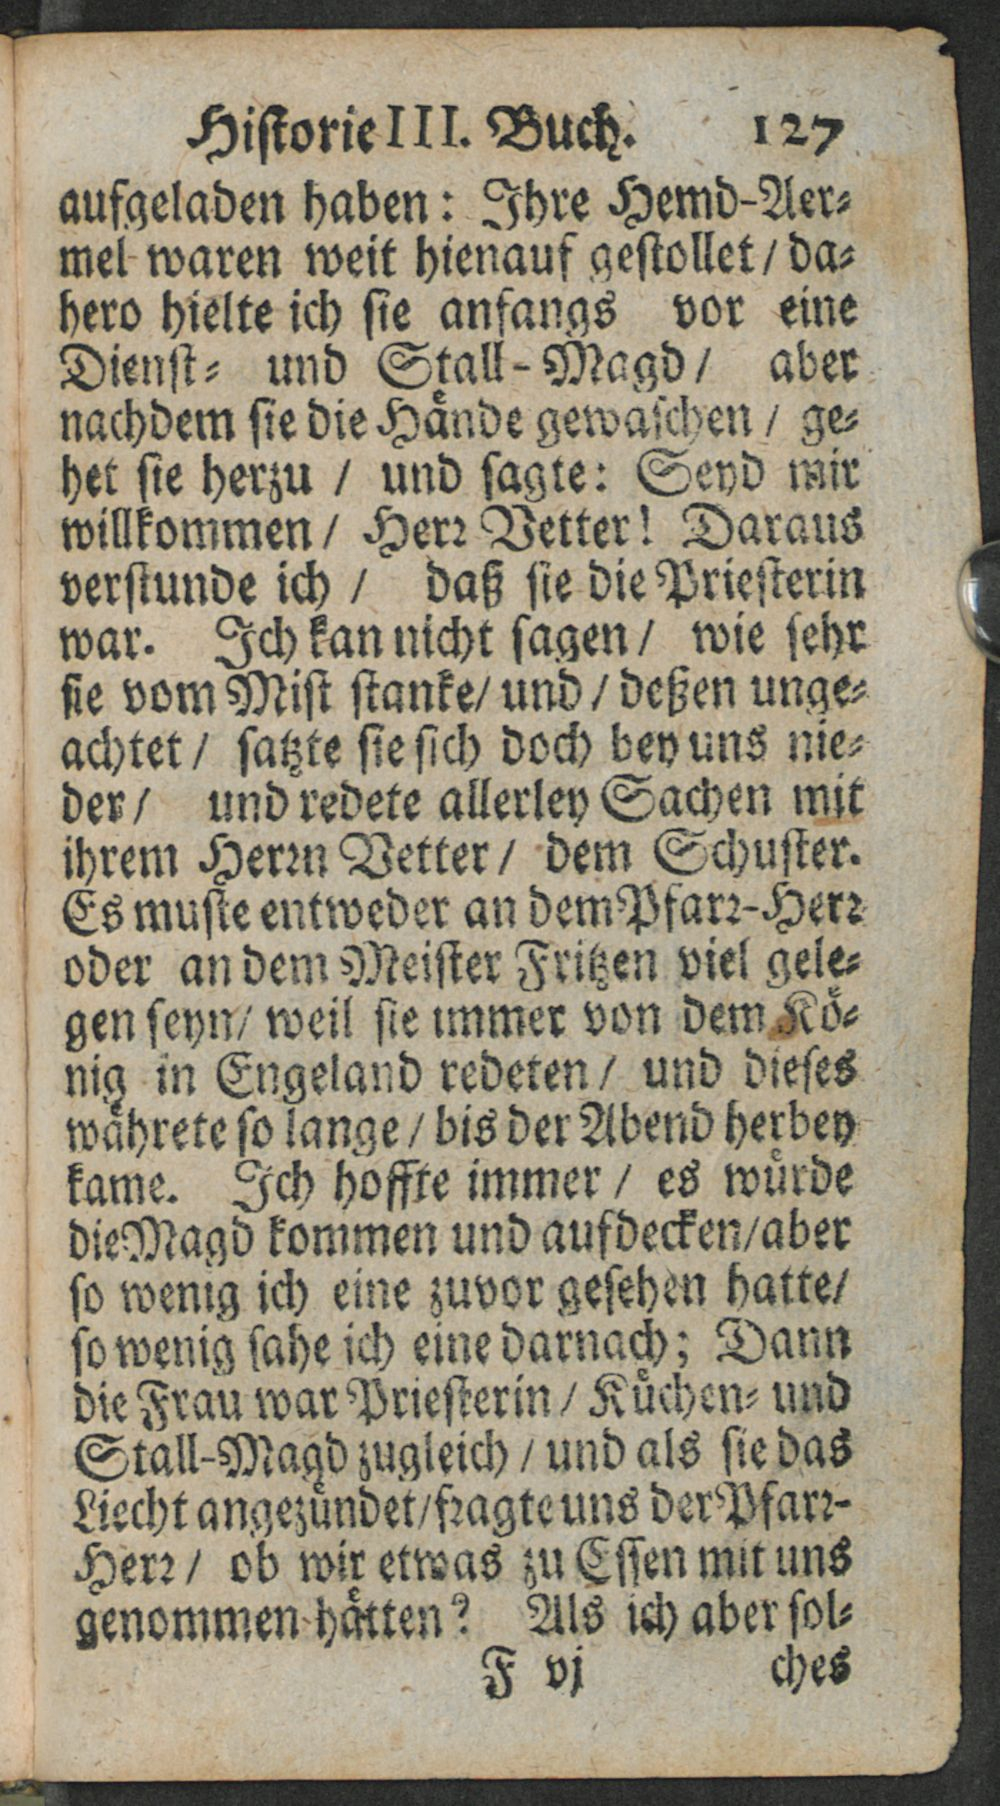 Hiſtorie III. Buch. 127
aufgeladen haben: Ihre Hemd-Aer⸗
mel waren weit hienauf geſtollet / da⸗
hero hielte ich ſie anfangs vor eine
Dienſt⸗ und Stall-Magd / aber
nachdem ſie die Haͤnde gewaſchen / ge⸗
het ſie herzu / und ſagte: Seyd mir
willkommen / Herꝛ Vetter! Daraus
verſtunde ich / daß ſie die Prieſterin
war. Ich kan nicht ſagen / wie ſehr
ſie vom Miſt ſtanke / und / deßen unge⸗
achtet / ſatzte ſie ſich doch bey uns nie⸗
der / und redete allerley Sachen mit
ihrem Herꝛn Vetter / dem Schuſter.
Es muſte entweder an dem Pfarꝛ-Herꝛ
oder an dem Meiſter Fritzen viel gele⸗
gen ſeyn / weil ſie immer von dem Koͤ⸗
nig in Engeland redeten / und dieſes
waͤhrete ſo lange / bis der Abend herbey
kame. Ich hoffte immer / es wuͤrde
die Magd kommen und aufdecken / aber
ſo wenig ich eine zuvor geſehen hatte /
ſo wenig ſahe ich eine darnach; Dann
die Frau war Prieſterin / Kuͤchen⸗ und
Stall-Magd zugleich / und als ſie das
Liecht angezuͤndet / fꝛagte uns der Pfarꝛ-
Herꝛ / ob wir etwas zu Eſſen mit uns
genommen haͤtten? Als ich aber ſol⸗
F vj ches